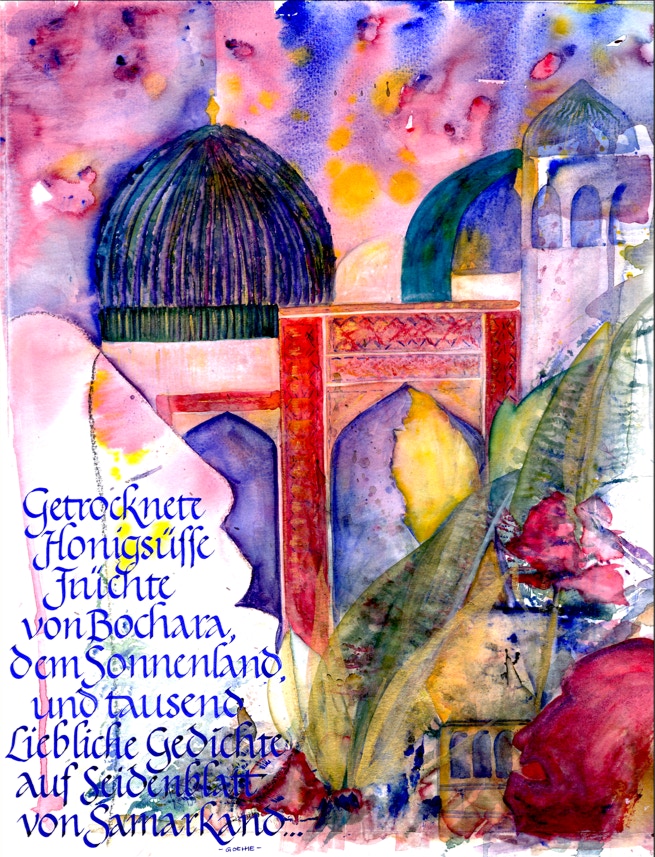 Getrocknete
Honigsüsse
Früchte
von Bochara,
dem Sonnenland,
und tausend
Liebliche Gedichte
auf Seidenblatt
von Samarkand...
- GOETHE -